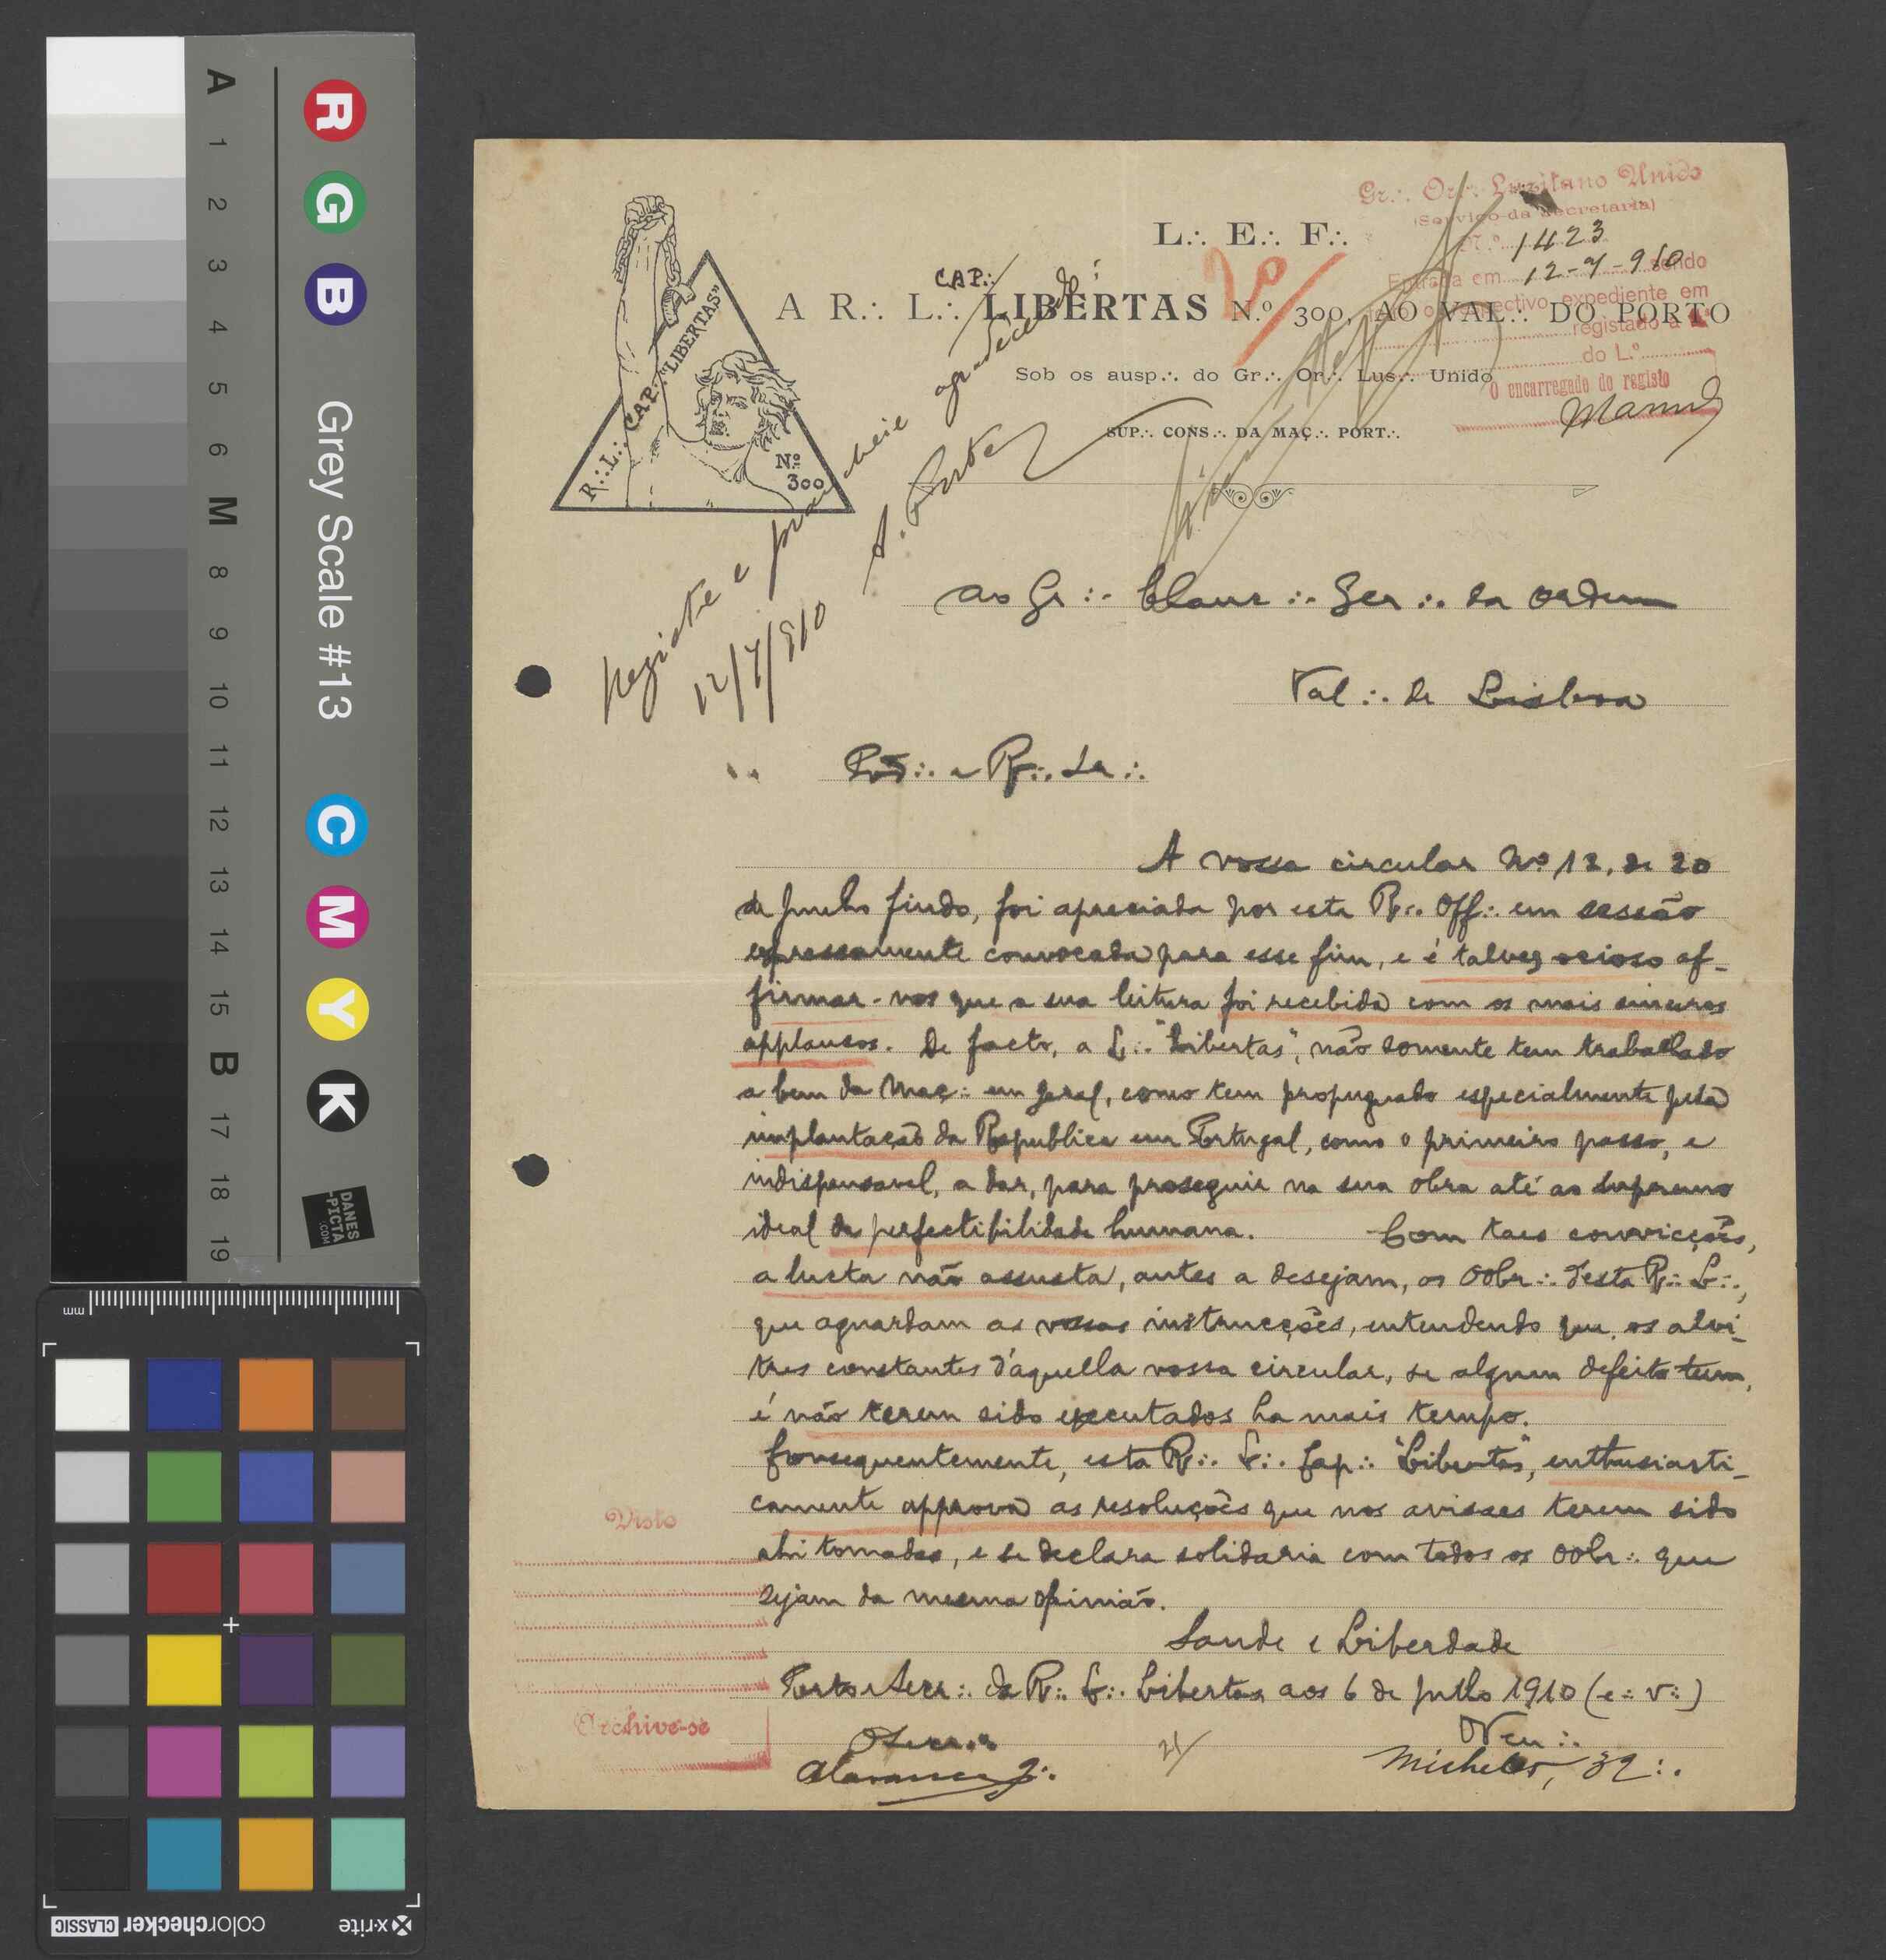 A
1
2
3
4
5
6
M
8
9
10
11
12
13
14
15
B
17
18
19
R G B
Grey Scale #13
C M Y K
DANES
-PICTA
.COM
mm
colorchecker CLASSIC
x-rite
R∴ L∴ CAP∴ "LIBERTAS"
Nº
300
Gr∴ Or∴ Luzitano Unido
(Serviço da Secretaria)
N.º 1423
Entrada em 12-7-910 sendo
o respectivo expediente em
registado a
do L.º
O encarregado do registo
L∴ E∴ F∴
2º
CAP∴
A R∴ L∴ LIBERTAS N.º 300, AO VAL∴ DO PORTO
Sob os ausp∴ do Gr∴ Or∴ Lus∴ Unido
SUP∴ CONS∴ DA MAÇ∴ PORT∴
Registe e agradecendo
12/7/910
Ao Gr∴ Claus∴ Ger∴ da Ordem
Val∴ de Lisboa
A vossa circular Nº 12, de 20
de Junho findo, foi apreciada por esta R∴ Off∴ em sessão
expressamente convocada para esse fim, e é talvez ocioso af-
firmar-vos que a sua leitura foi recebida com os mais sinceros
applausos. De facto, a L∴ "Libertas", não somente tem trabalhado
a bem da Maç∴ em geral, como tem propugnado especialmente pela
implantação da Republica em Portugal, como o primeiro passo, e
indispensavel, a dar, para proseguir na sua obra até ao supremo
ideal da perfectibilidade humana. Com taes convicções,
a lucta não assusta, antes a desejam, os Oobr∴ desta R∴ L∴,
que aguardam as vossas instrucções, entendendo que os alvi-
tres constantes d'aquella vossa circular, se algum defeito teem,
é não terem sido executados ha mais tempo.
Consequentemente, esta R∴ L∴ Cap∴ "Libertas", enthusiasti-
camente approva as resoluções que nos avisaes terem sido
ahi tomadas, e se declara solidaria com todos os Oobr∴ que
sejam da mesma opinião.
Saude e Liberdade
Porto e Secr∴ da R∴ L∴ Libertas aos 6 de Julho 1910 (e∴ v∴)
O Secr∴
O Ven∴
21/
Michelet, 32∴
Visto
Archive-se